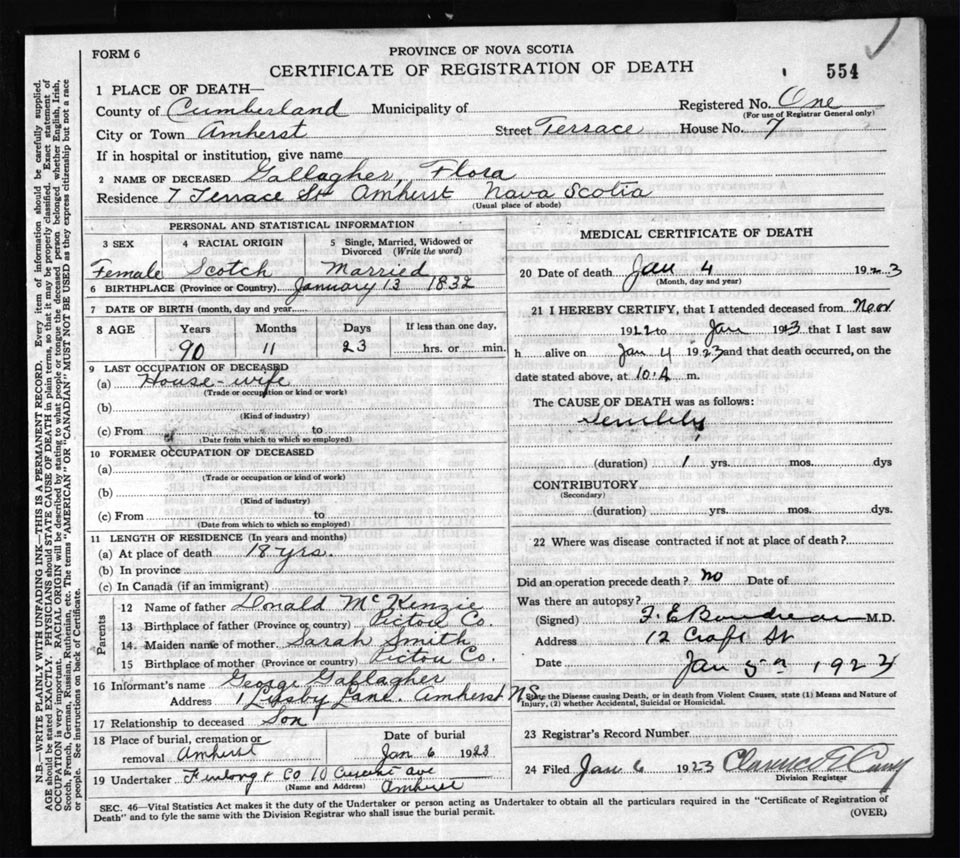 FORM 6
PROVINCE OF NOVA SCOTIA
CERTIFICATE OF REGISTRATION OF DEATH
554
1 PLACE OF DEATH—
County of Cumberland Municipality of
Registered No. One
(For use of Registrar General only)
City or Town Amherst Street Terrace House No. 7
If in hospital or institution, give name
2 NAME OF DECEASED Gallagher, Flora
Residence 7 Terrace St Amherst Nova Scotia
(Usual place of abode)
PERSONAL AND STATISTICAL INFORMATION
3 SEX 4 RACIAL ORIGIN 5 Single, Married, Widowed or
Divorced (Write the word)
Female Scotch Married
6 BIRTHPLACE (Province or Country) January 13 1832
7 DATE OF BIRTH (month, day and year
8 AGE Years Months Days If less than one day,
90 11 23 hrs. or min.
9 LAST OCCUPATION OF DECEASED
(a) House-wife
(Trade or occupation or kind or work)
(b)
(Kind of industry)
(c) From to
(Date from which to which so employed)
10 FORMER OCCUPATION OF DECEASED
(a)
(Trade or occupation or kind of work)
(b)
(Kind of industry)
(c) From to
(Date from which to which so employed)
11 LENGTH OF RESIDENCE (In years and months)
(a) At place of death 18 yrs.
(b) In province
(c) In Canada (if an immigrant)
Parents
12 Name of father Donald McKenzie
13 Birthplace of father (Province or country) Pictou Co.
14. Maiden name of mother. Sarah Smith
15 Birthplace of mother (Province or country) Pictou Co.
16 Informant's name George Gallagher
Address Lane. Amherst NS
17 Relationship to deceased Son
18 Place of burial, cremation or Date of burial
removal Amherst Jan 6 1923
19 Undertaker & Co 10 ave
(Name and Address) Amherst
MEDICAL CERTIFICATE OF DEATH
20 Date of death Jan 4 1923
(Month, day and year)
21 I HEREBY CERTIFY, that I attended deceased from Nov
1922 to Jan 1923 that I last saw
h alive on Jan 4 1923 and that death occurred, on the
date stated above, at 10.A m.
The CAUSE OF DEATH was as follows:
Senility
(duration) 1 yrs. mos. dys
CONTRIBUTORY
(Secondary)
(duration) yrs. mos. dys.
22 Where was disease contracted if not at place of death?
Did an operation precede death? no Date of
Was there an autopsy?
(Signed) F. E Boudreau M.D.
Address 12 Croft St
Date Jan 5th 1923
State the Disease causing Death, or in death from Violent Causes, state (1) Means and Nature of
Injury, (2) whether Accidental, Suicidal or Homicidal.
23 Registrar's Record Number
24 Filed Jan 6 1923 Clarence E
Division Registrar
SEC. 46—Vital Statistics Act makes it the duty of the Undertaker or person acting as Undertaker to obtain all the particulars required in the "Certificate of Registration of
Death" and to fyle the same with the Division Registrar who shall issue the burial permit.
(OVER)
N.B.—WRITE PLAINLY WITH UNFADING INK—THIS IS A PERMANENT RECORD. Every item of information should be carefully supplied.
AGE should be stated EXACTLY. PHYSICIANS should STATE CAUSE OF DEATH in plain terms, so that it may be properly classified. Exact statement of
OCCUPATION is very important. RACIAL ORIGIN will be described by stating to what people or tongue the deceased person belonged whether English, Irish,
Scotch, French, German, Russian, Ruthenian, etc. The terms "AMERICAN" OR "CANADIAN" MUST NOT BE USED as they express citizenship but not a race
or people. See instructions on back of Certificate.